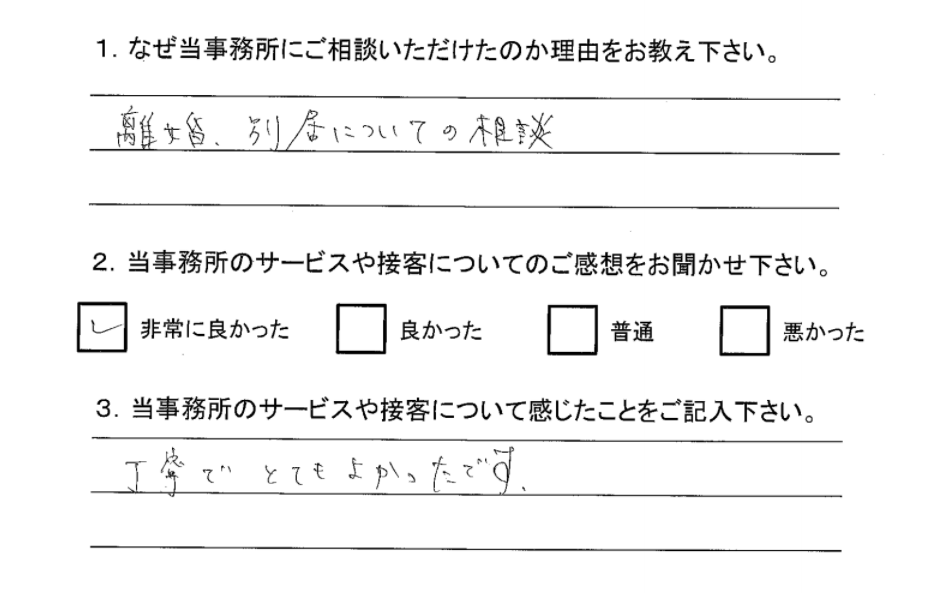 1. なぜ当事務所にご相談いただけたのか理由をお教え下さい。
離婚、別居についての相談
2. 当事務所のサービスや接客についてのご感想をお聞かせ下さい。
非常に良かった 良かった 普通 悪かった
3. 当事務所のサービスや接客について感じたことをご記入下さい。
丁寧で とてもよかったです.